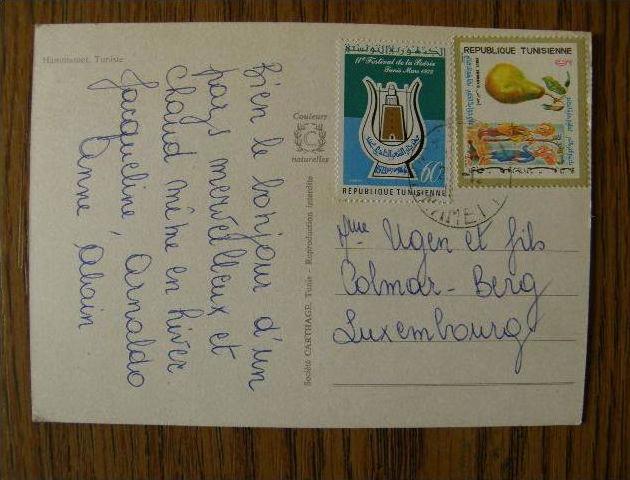 Hammamet, Tunisie
Bien le bonjour d'un
pays merveilleux et
chaud même en hiver.
Jacqueline, Arnaldo
Anne, Alain
Couleurs
naturelles
Société CARTHAGE, Tunis - Reproduction interdite
الجمهورية التونسية
IIe Festival de la Poésie
Tunis Mars 1972
60
REPUBLIQUE TUNISIENNE
REPUBLIQUE TUNISIENNE
Mme Ugen et fils
Colmar-Berg
Luxembourg